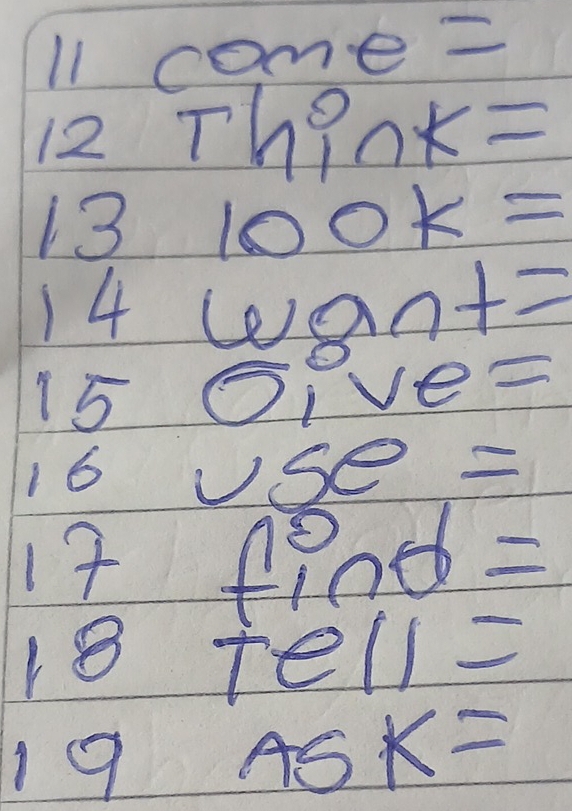 11 come =
12 Think =
13 look =
14 want =
15 Give =
16 use =
17 find =
18 Tell =
19 ASK =